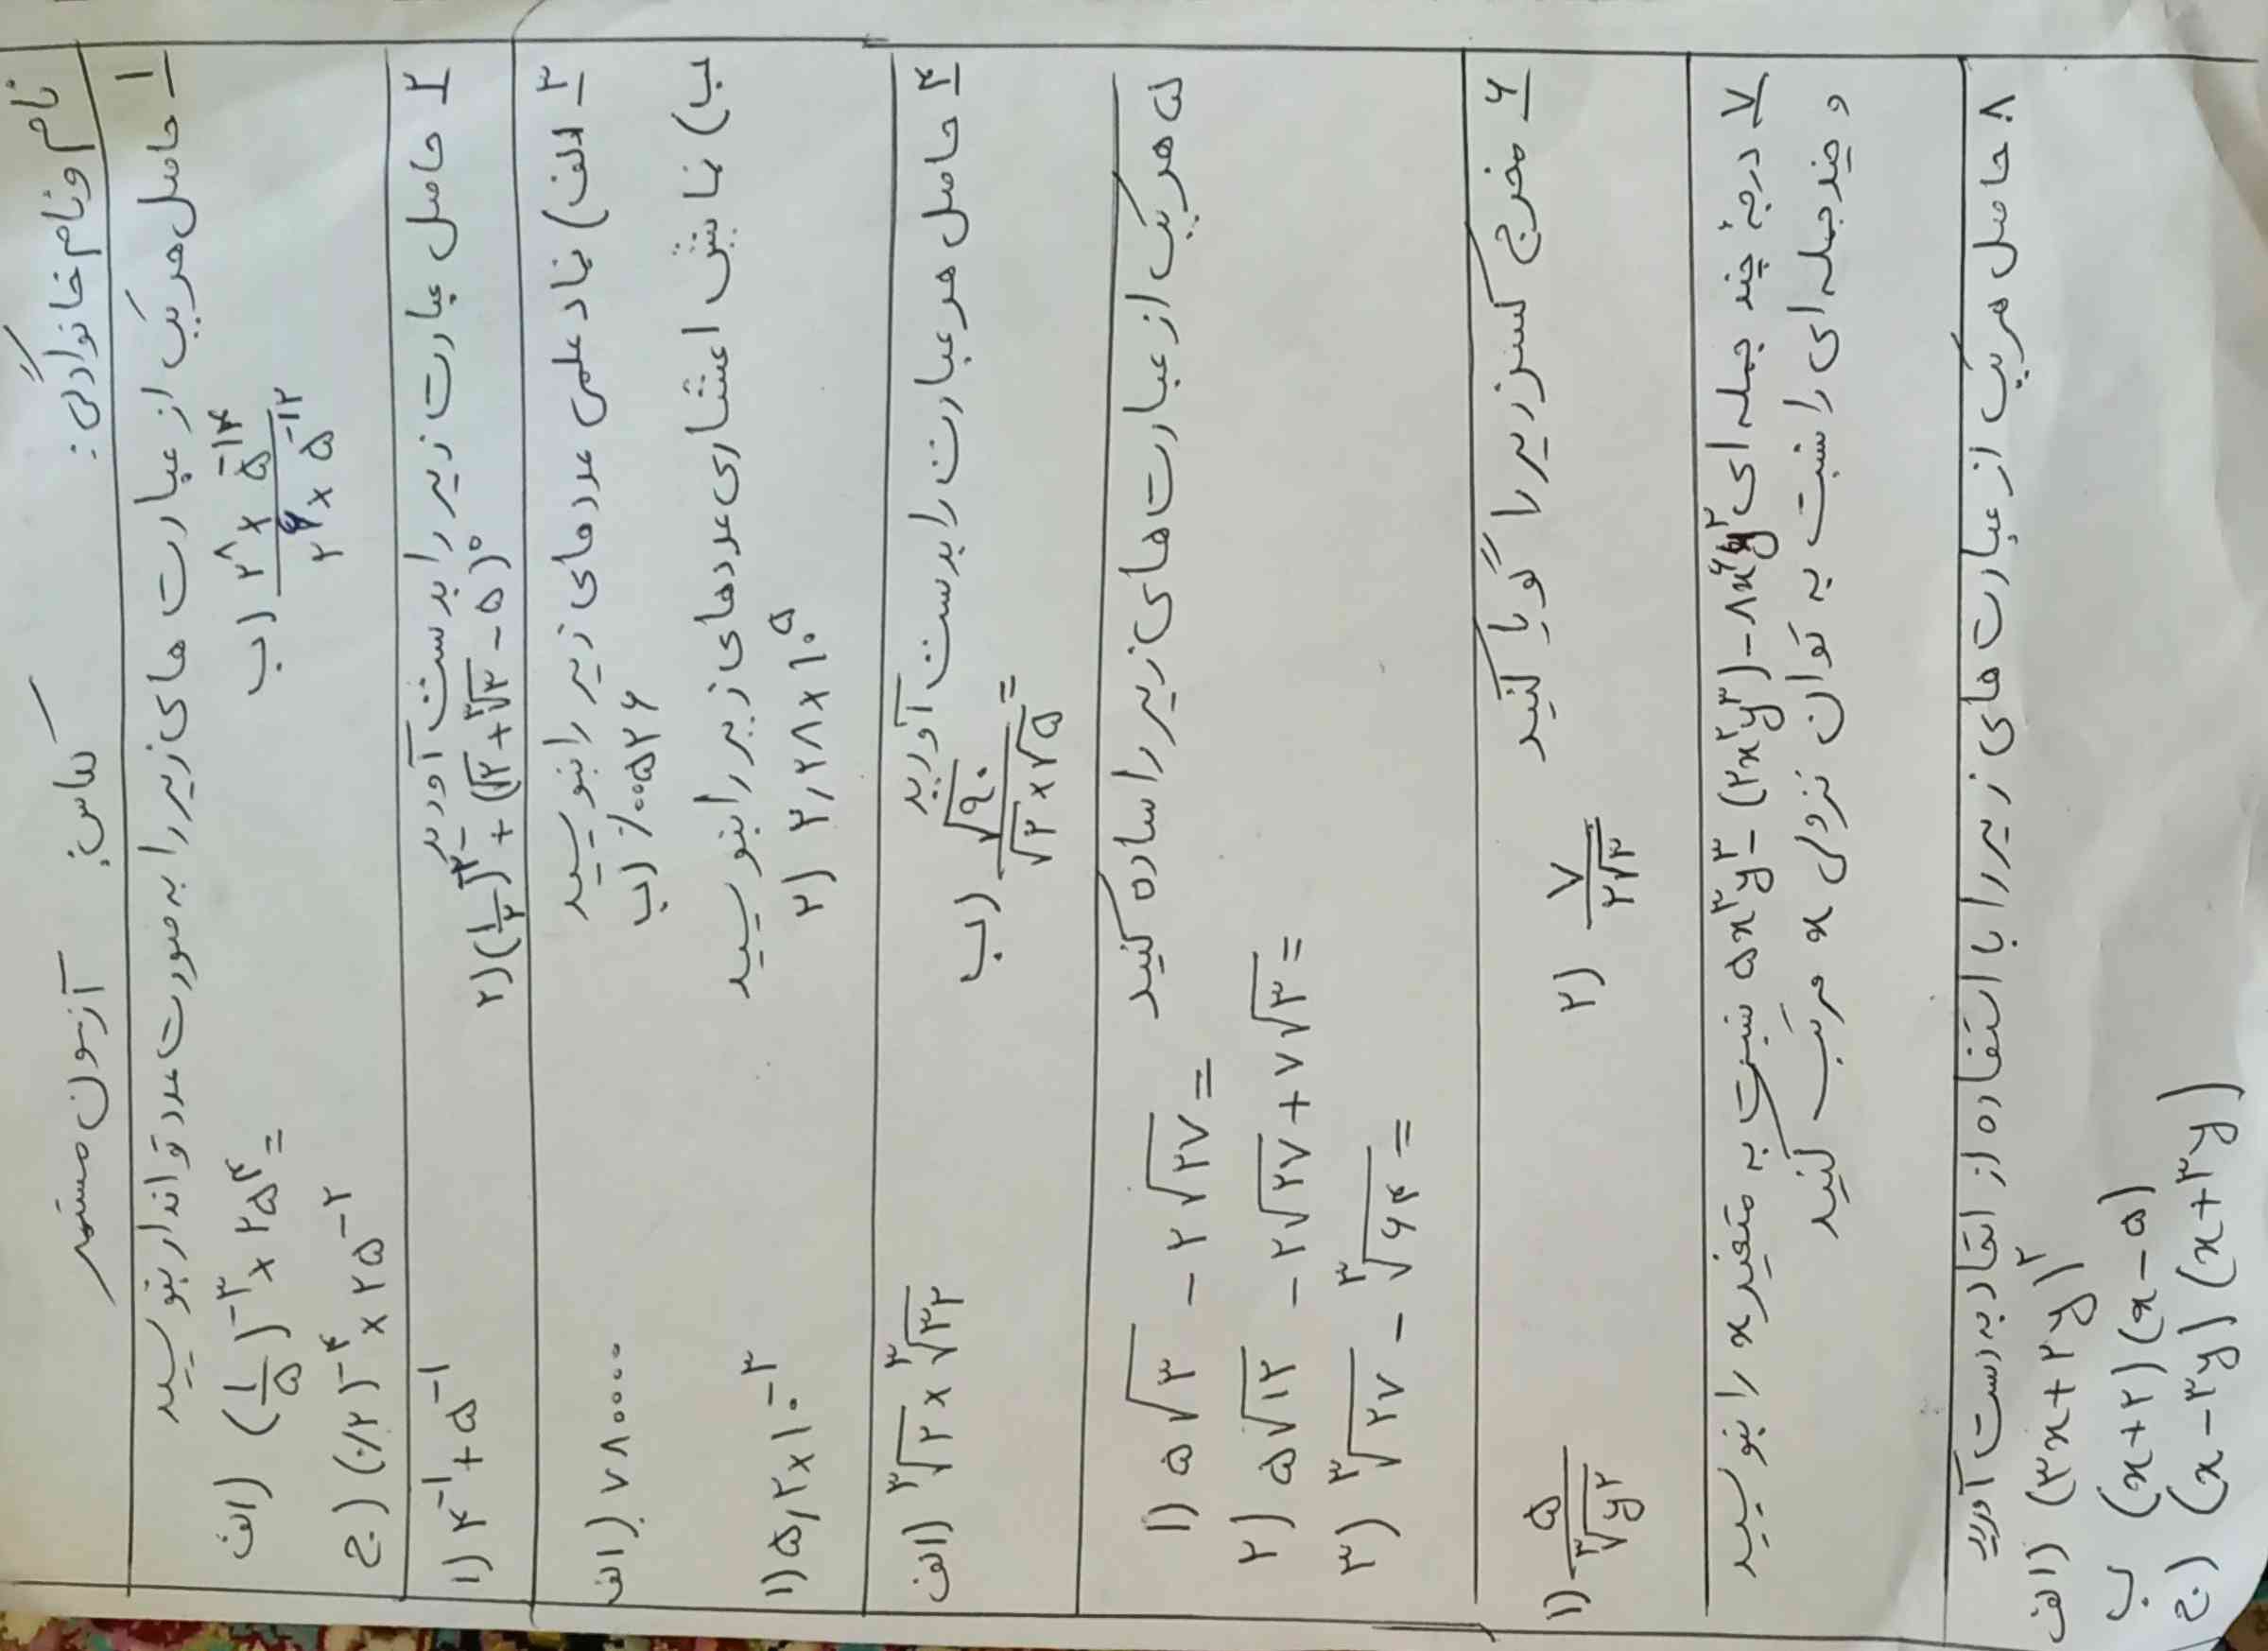 نام و نام خانوادگی: کلاس: آزمون مستمر
۱ حاصل هریک از عبارت های زیر را به صورت عدد توان دار بنویسید
الف) (۱/۵)^-۳ × ۲۵^۴ = ب) (۲^۸ × ۵^-۱۴)/(۲^۶ × ۵^-۱۲)
ج) (۰/۲)^-۴ × ۲۵^-۲
۲ حاصل عبارت زیر را بدست آورید
۱) ۴^-۱ + ۵^-۱ ۲) (۱/۲)^-۳ + (√۲ + ∛۳ - ۵)^۰
۳ الف) نماد علمی عددهای زیر را بنویسید
الف) ۷۸۰۰۰۰ ب) ۰/۰۰۵۲۶
ب) نمایش اعشاری عددهای زیر را بنویسید
۱) ۵٫۲×۱۰^-۳ ۲) ۲٫۲۸×۱۰^۵
۴ حاصل هر عبارت را بدست آورید
الف) ∛۲ × ∛۳۲ ب) √۹۰/(√۲×۲√۵) =
۵ هریک از عبارت های زیر را ساده کنید
۱) ۵√۳ - ۲√۲۷ =
۲) ۵√۱۲ - ۲√۲۷ + ۷√۳ =
۳) ∛۲۷ - ∛۶۴ =
۶ مخرج کسر زیر را گویا کنید
۱) ۵/∛y^۲ ۲) ۷/(۲√۳)
۷ درجهٔ چند جمله ای ۵x^۳y^۳ - (۲x^۲y^۳) - ۸x^۶y^۲ نسبت به متغیر x را بنویسید
و چندجمله ای را نسبت به توان نزولی x مرتب کنید
۸ حاصل هریک از عبارت های زیر را با استفاده از اتحاد بدست آورید
الف) (۳x+۲y)^۲
ب (x+۲)(x-۵)
ج) (x-۳y)(x+۳y)